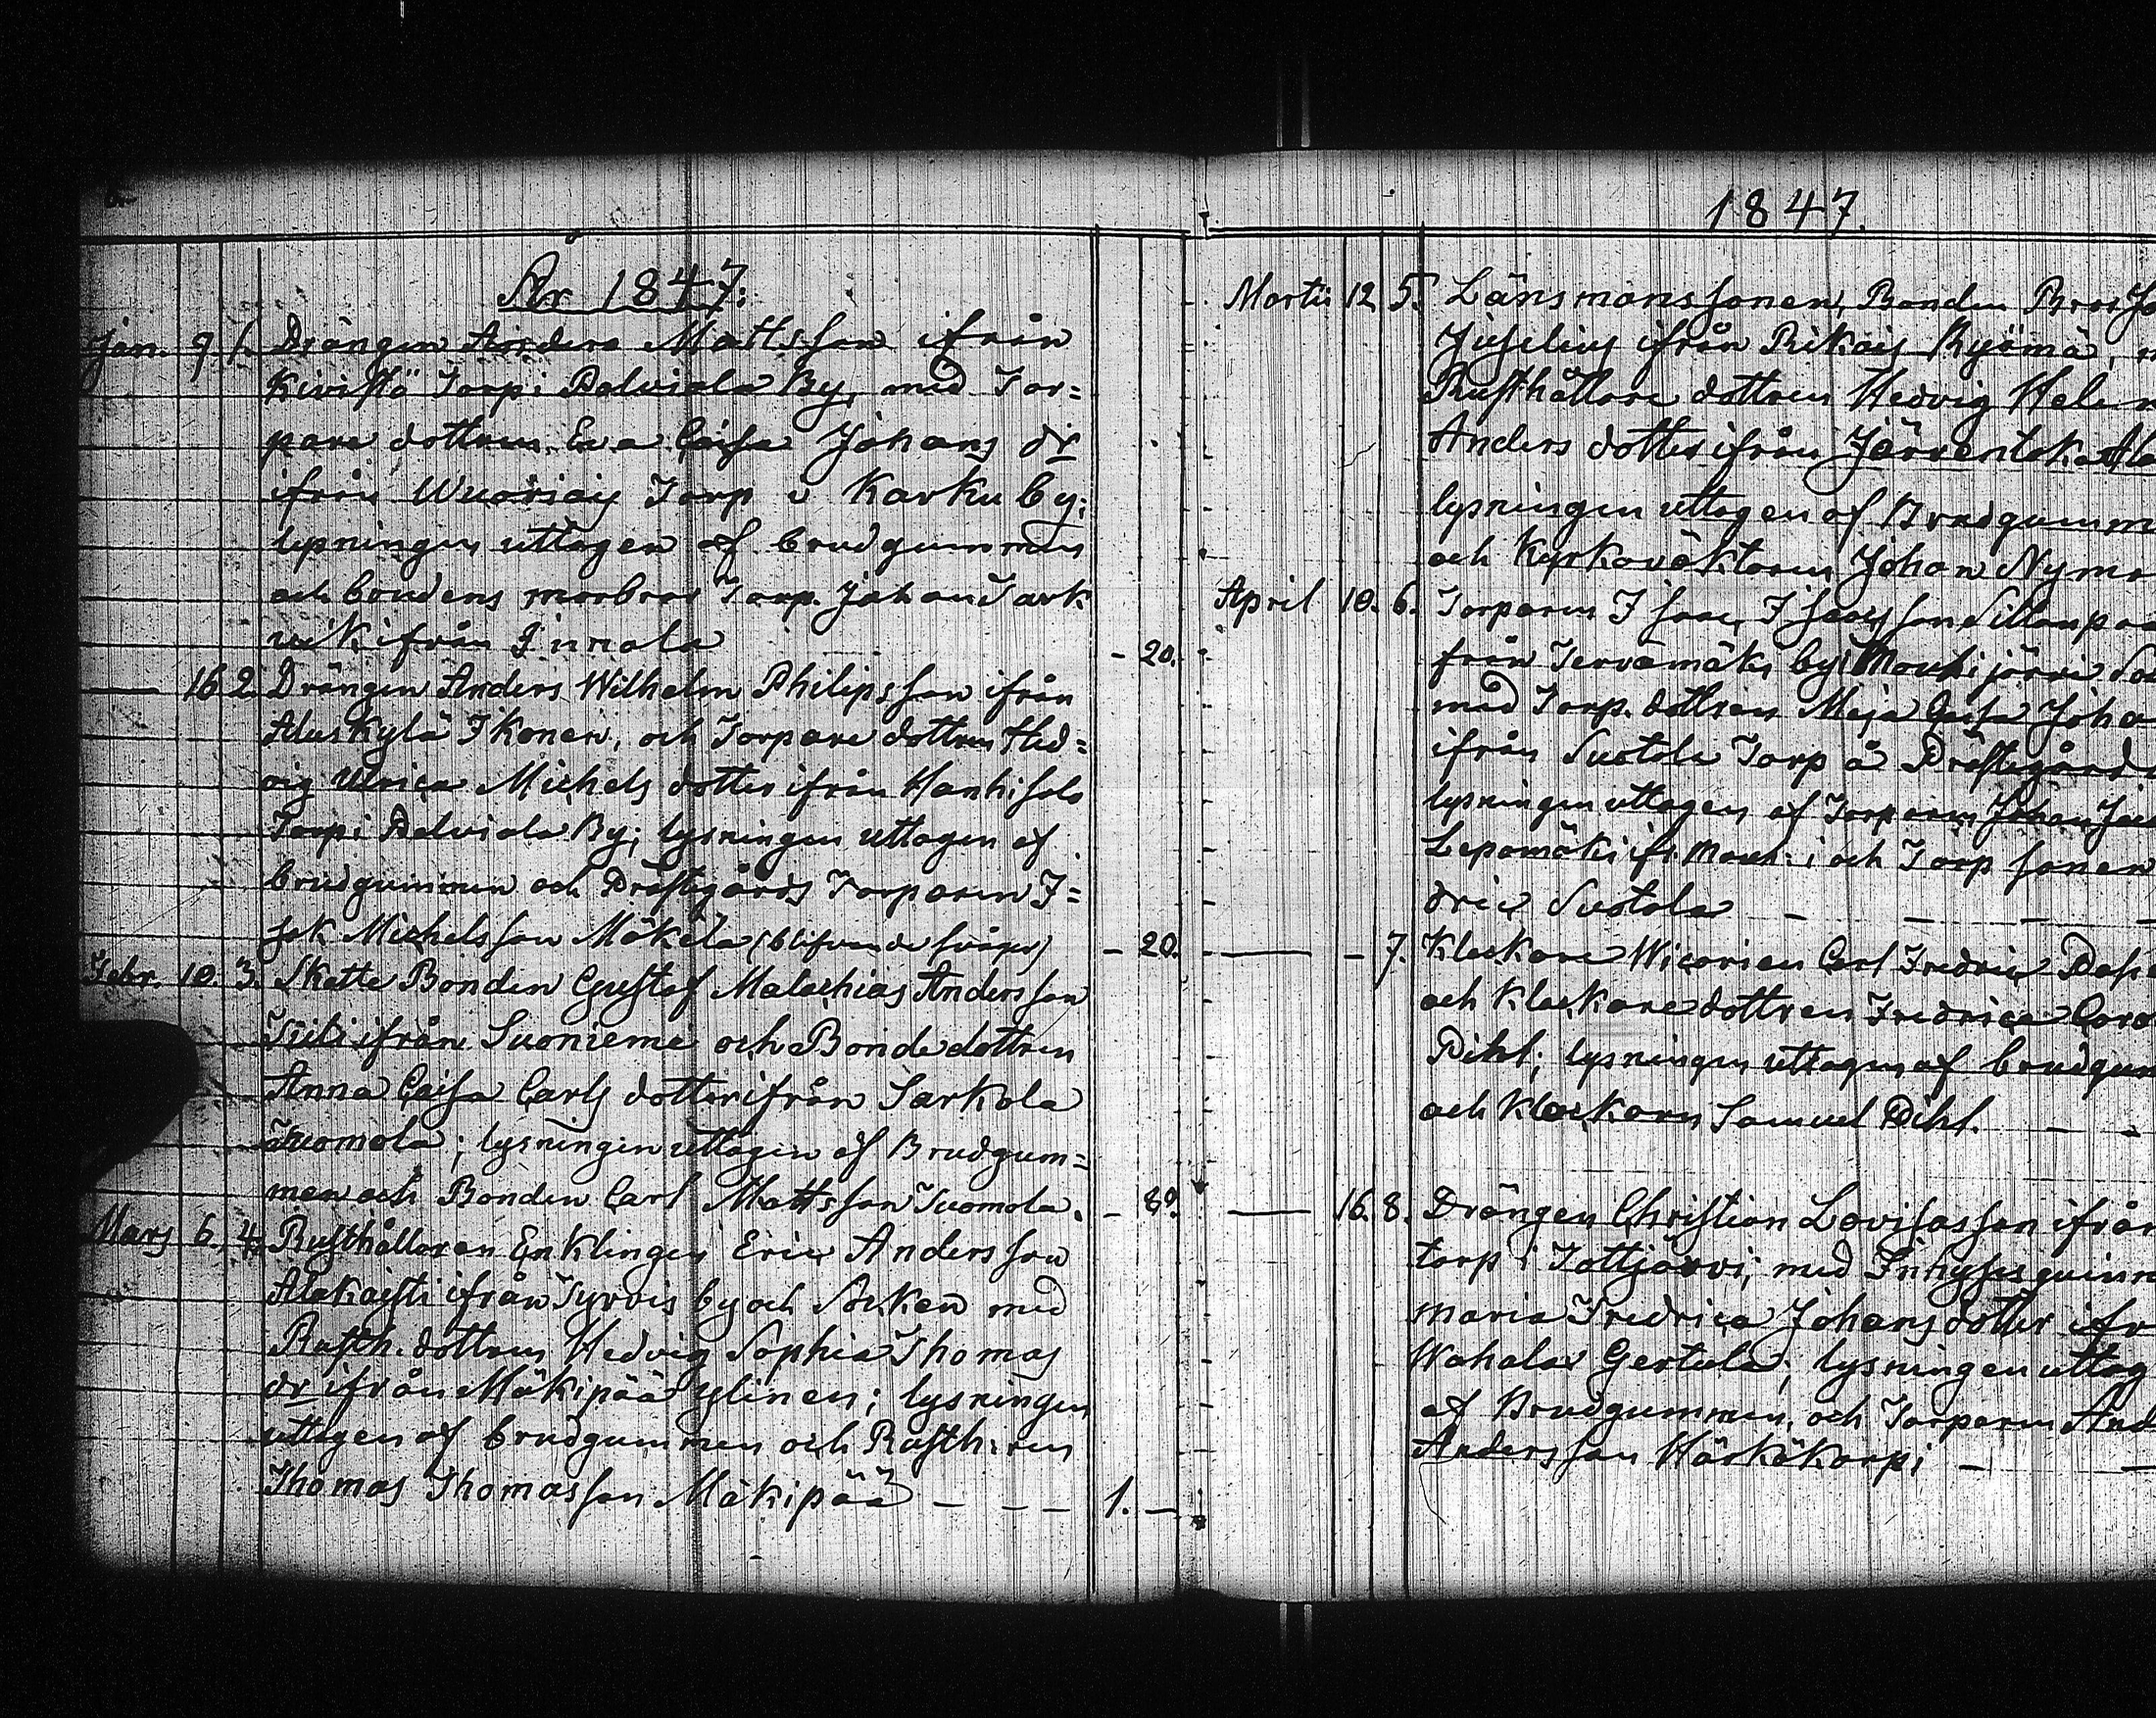 År 1847:
Jan. 9 1. Drängen Anders Mattsson ifrån
Kivistö Torp i Palviala By, med Tor=
pare dottren Eva Caisa Johans dr
ifrån Wuoriais Torp i Karku by;
lysningen uttagen af brudgummen
och brudens morbror Torp. Johan Tark
ifrån Innala - 20.
— 16 2. Drängen Anders Wilhelm Philipsson ifrån
Aluskylä Ikonen, och Torpare dottren Hed=
vig Ulrica Michels dotter ifrån Hanhisalo
Torp i Palviala By; lysningen uttagen af
brudgummen och Prästgårds Torparen I=
sak Michelsson Mäkelä (blifvande svåger) - 20.
Febr. 10. 3. Skatte Bonden Gustaf Malachias Andersson
ifrån Suonieme och Bondedottren
Anna Caisa Carls dotter ifrån Sarkola
Tuomola; lysningen uttagen af Brudgum=
men och Bonden Carl Mattsson Tuomola. - 80.
Mars 6. 4. Rusthållaren Enklingen Eric Andersson
Alakaisti ifrån Tyrvis by och Socken med
Rusth. dottren Hedvig Sophia Thomas
dr ifrån Mäkipää Ylinen; lysningen
uttagen af brudgummen och Rusth:ren
Thomas Thomasson Mäkipää - - - 1. —
1847.
Martii 12 5. Länsmanssonen, Bonden
ifrån Rikais Ryömä,
Rusthållare dottren Hedvig
Anders dotter ifrån
lysningen uttagen af
och Kyrkoväktaren Johan
April 10. 6. Torparen Isaac Isacsson
från Tervamäki by i Mouhijärvi
med Torp. dottren Maja Caisa
ifrån Suotala Torp å
lysningen uttagen af Torparen Johan
Lepomäki ifr. Mouh:i och Torp sonen
dric Suotala - - - -
— - 7. Klockare Wicarien Carl Fredric
och Klockare dottren Fredrica
Pihl; lysningen uttagen af
och Klockaren Samuel Pihl. - -
— 16. 8. Drängen Christian Lovisasson ifrån
torp i Tottijärvi; med
Maria Fredrica Johans dotter
Wahalax Gertula; lysningen
af Brudgummen, och Torparen
Andersson Härkäkorpi - —